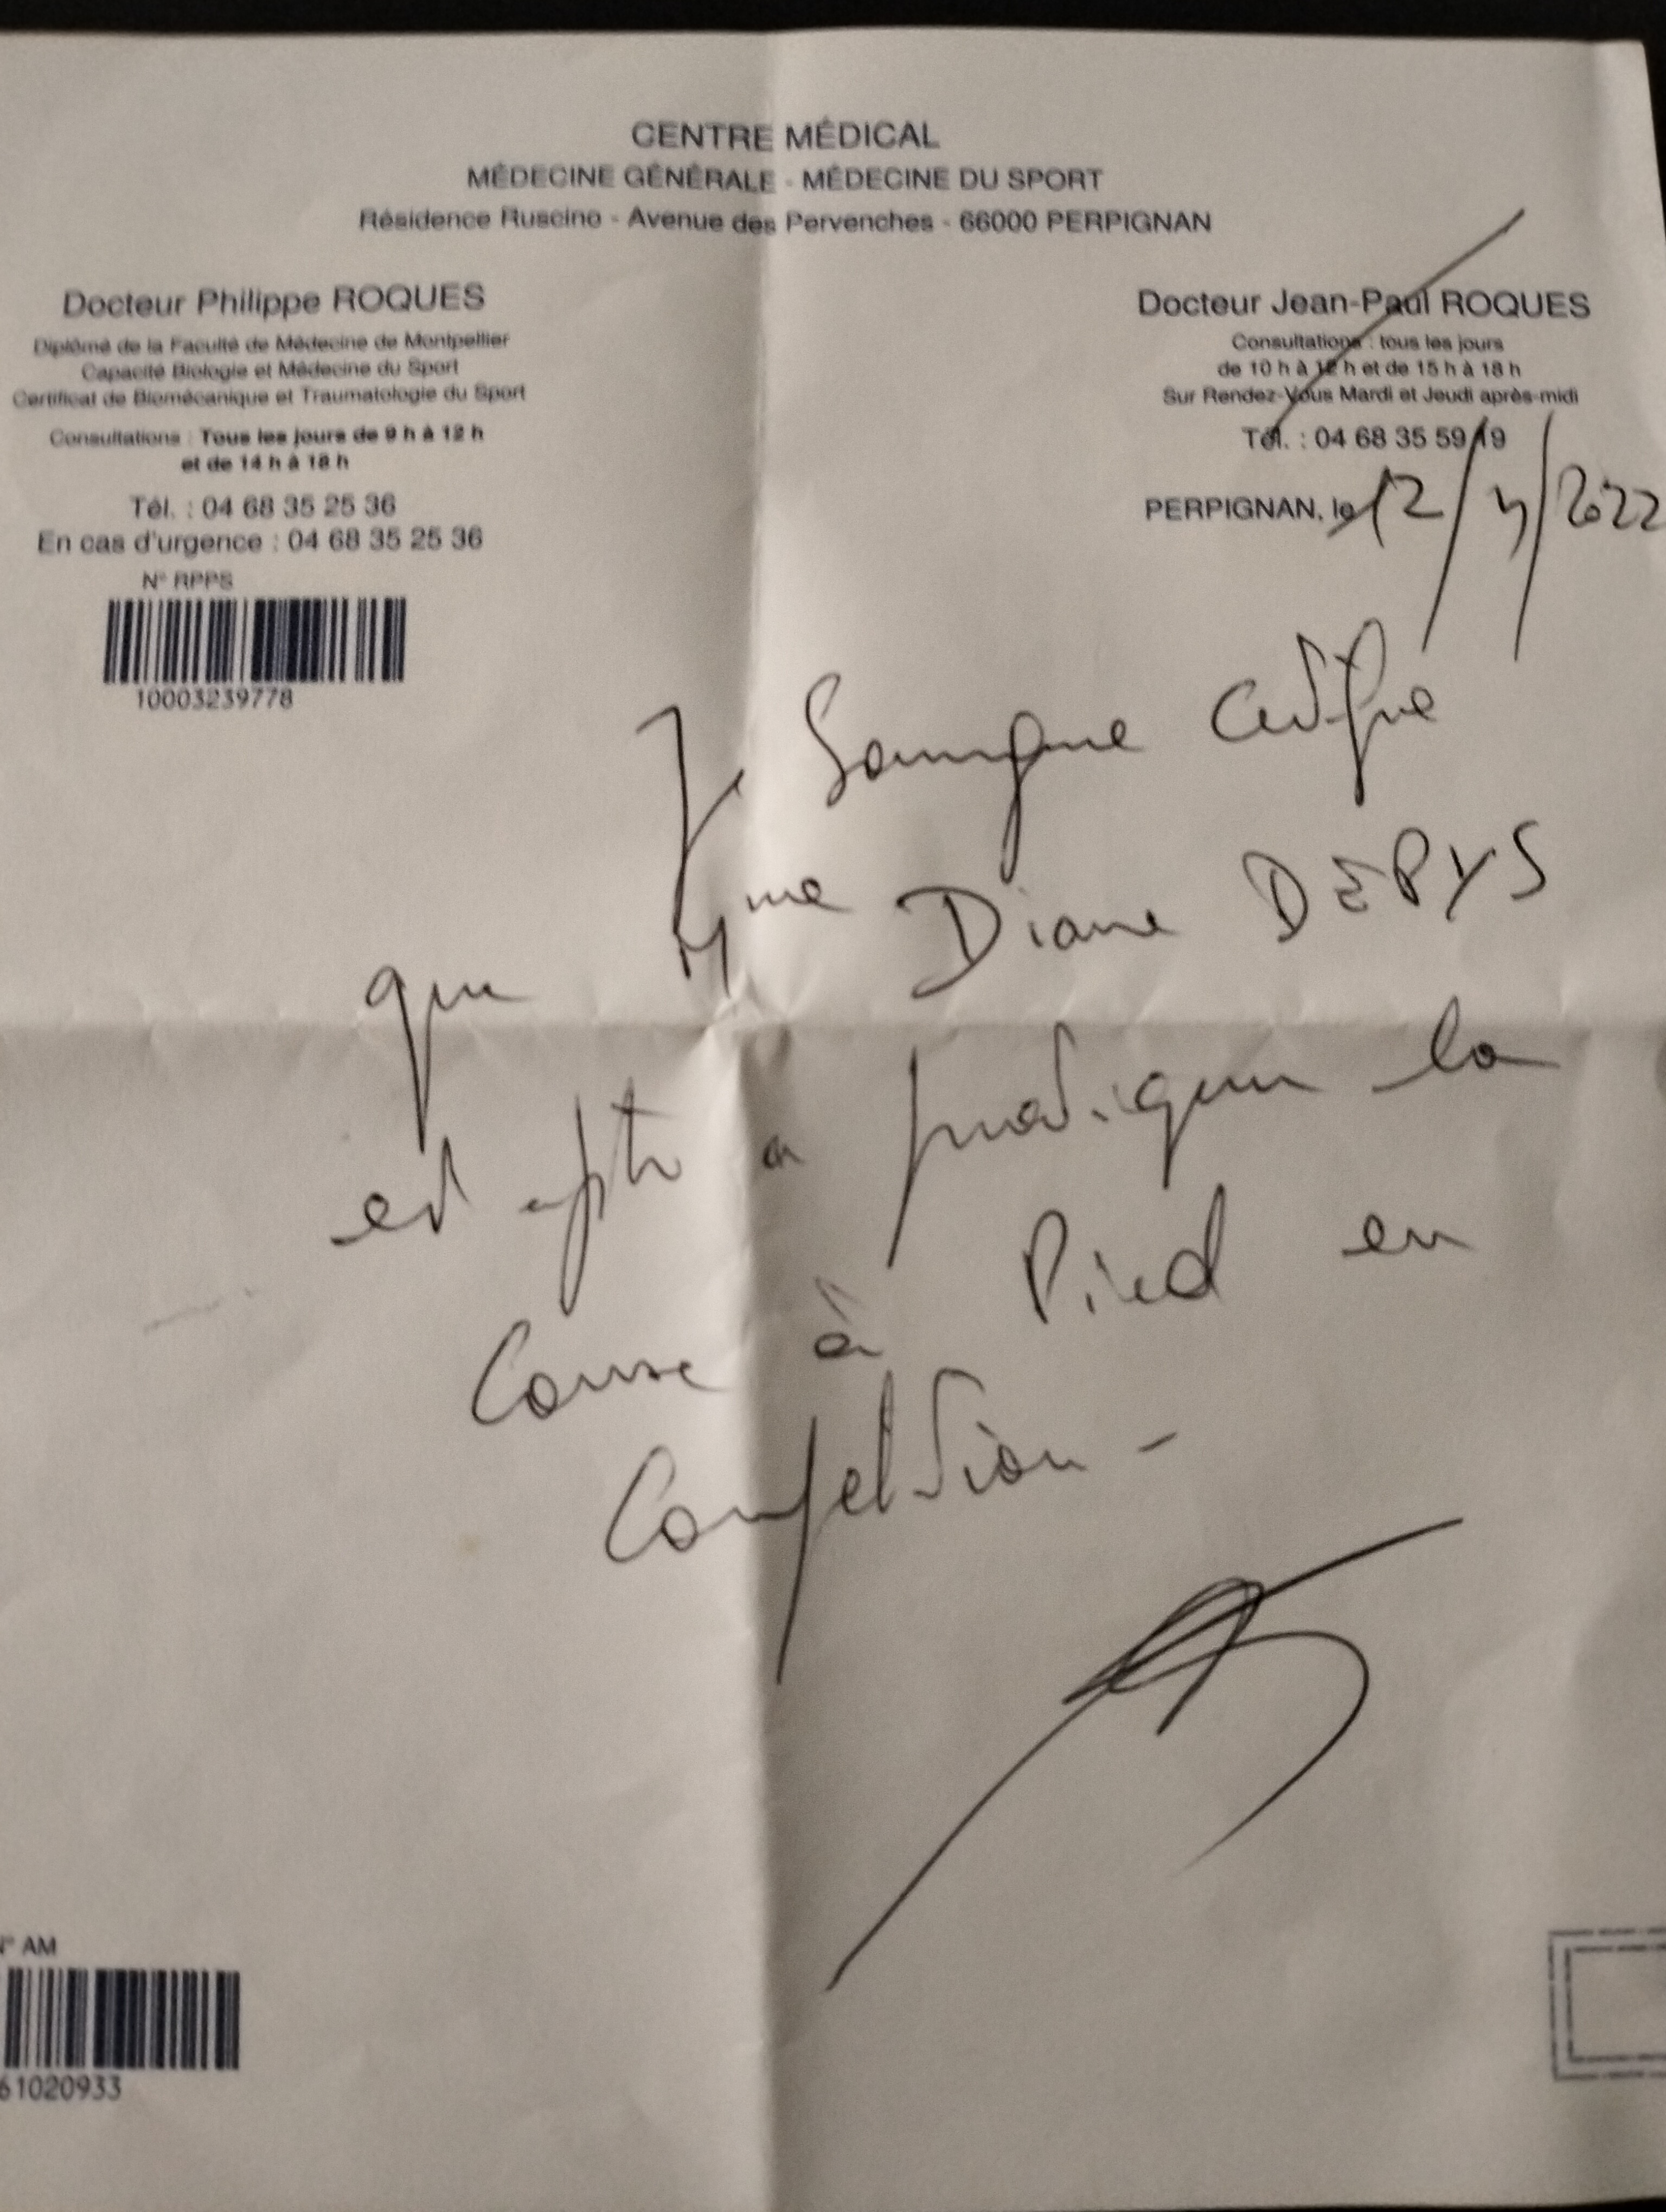 CENTRE MÉDICAL
MÉDECINE GÉNÉRALE - MÉDECINE DU SPORT
Résidence Ruscino - Avenue des Pervenches - 66000 PERPIGNAN
Docteur Philippe ROQUES
Diplômé de la Faculté de Médecine de Montpellier
Capacité Biologie et Médecine du Sport
Certificat de Biomécanique et Traumatologie du Sport
Consultations : Tous les jours de 9 h à 12 h
et de 14 h à 18 h
Tél. : 04 68 35 25 36
En cas d'urgence : 04 68 35 25 36
N° RPPS
10003239778
Docteur Jean-Paul ROQUES
Consultations : tous les jours
de 10 h à 12 h et de 15 h à 18 h
Sur Rendez-Vous Mardi et Jeudi après-midi
Tél. : 04 68 35 59 19
PERPIGNAN, le 12/4/2022
Je Soussigné Certifie
que Mme Diane DEPYS
est apte a pratiquer la
Course à Pied en
Compétition -
N° AM
61020933